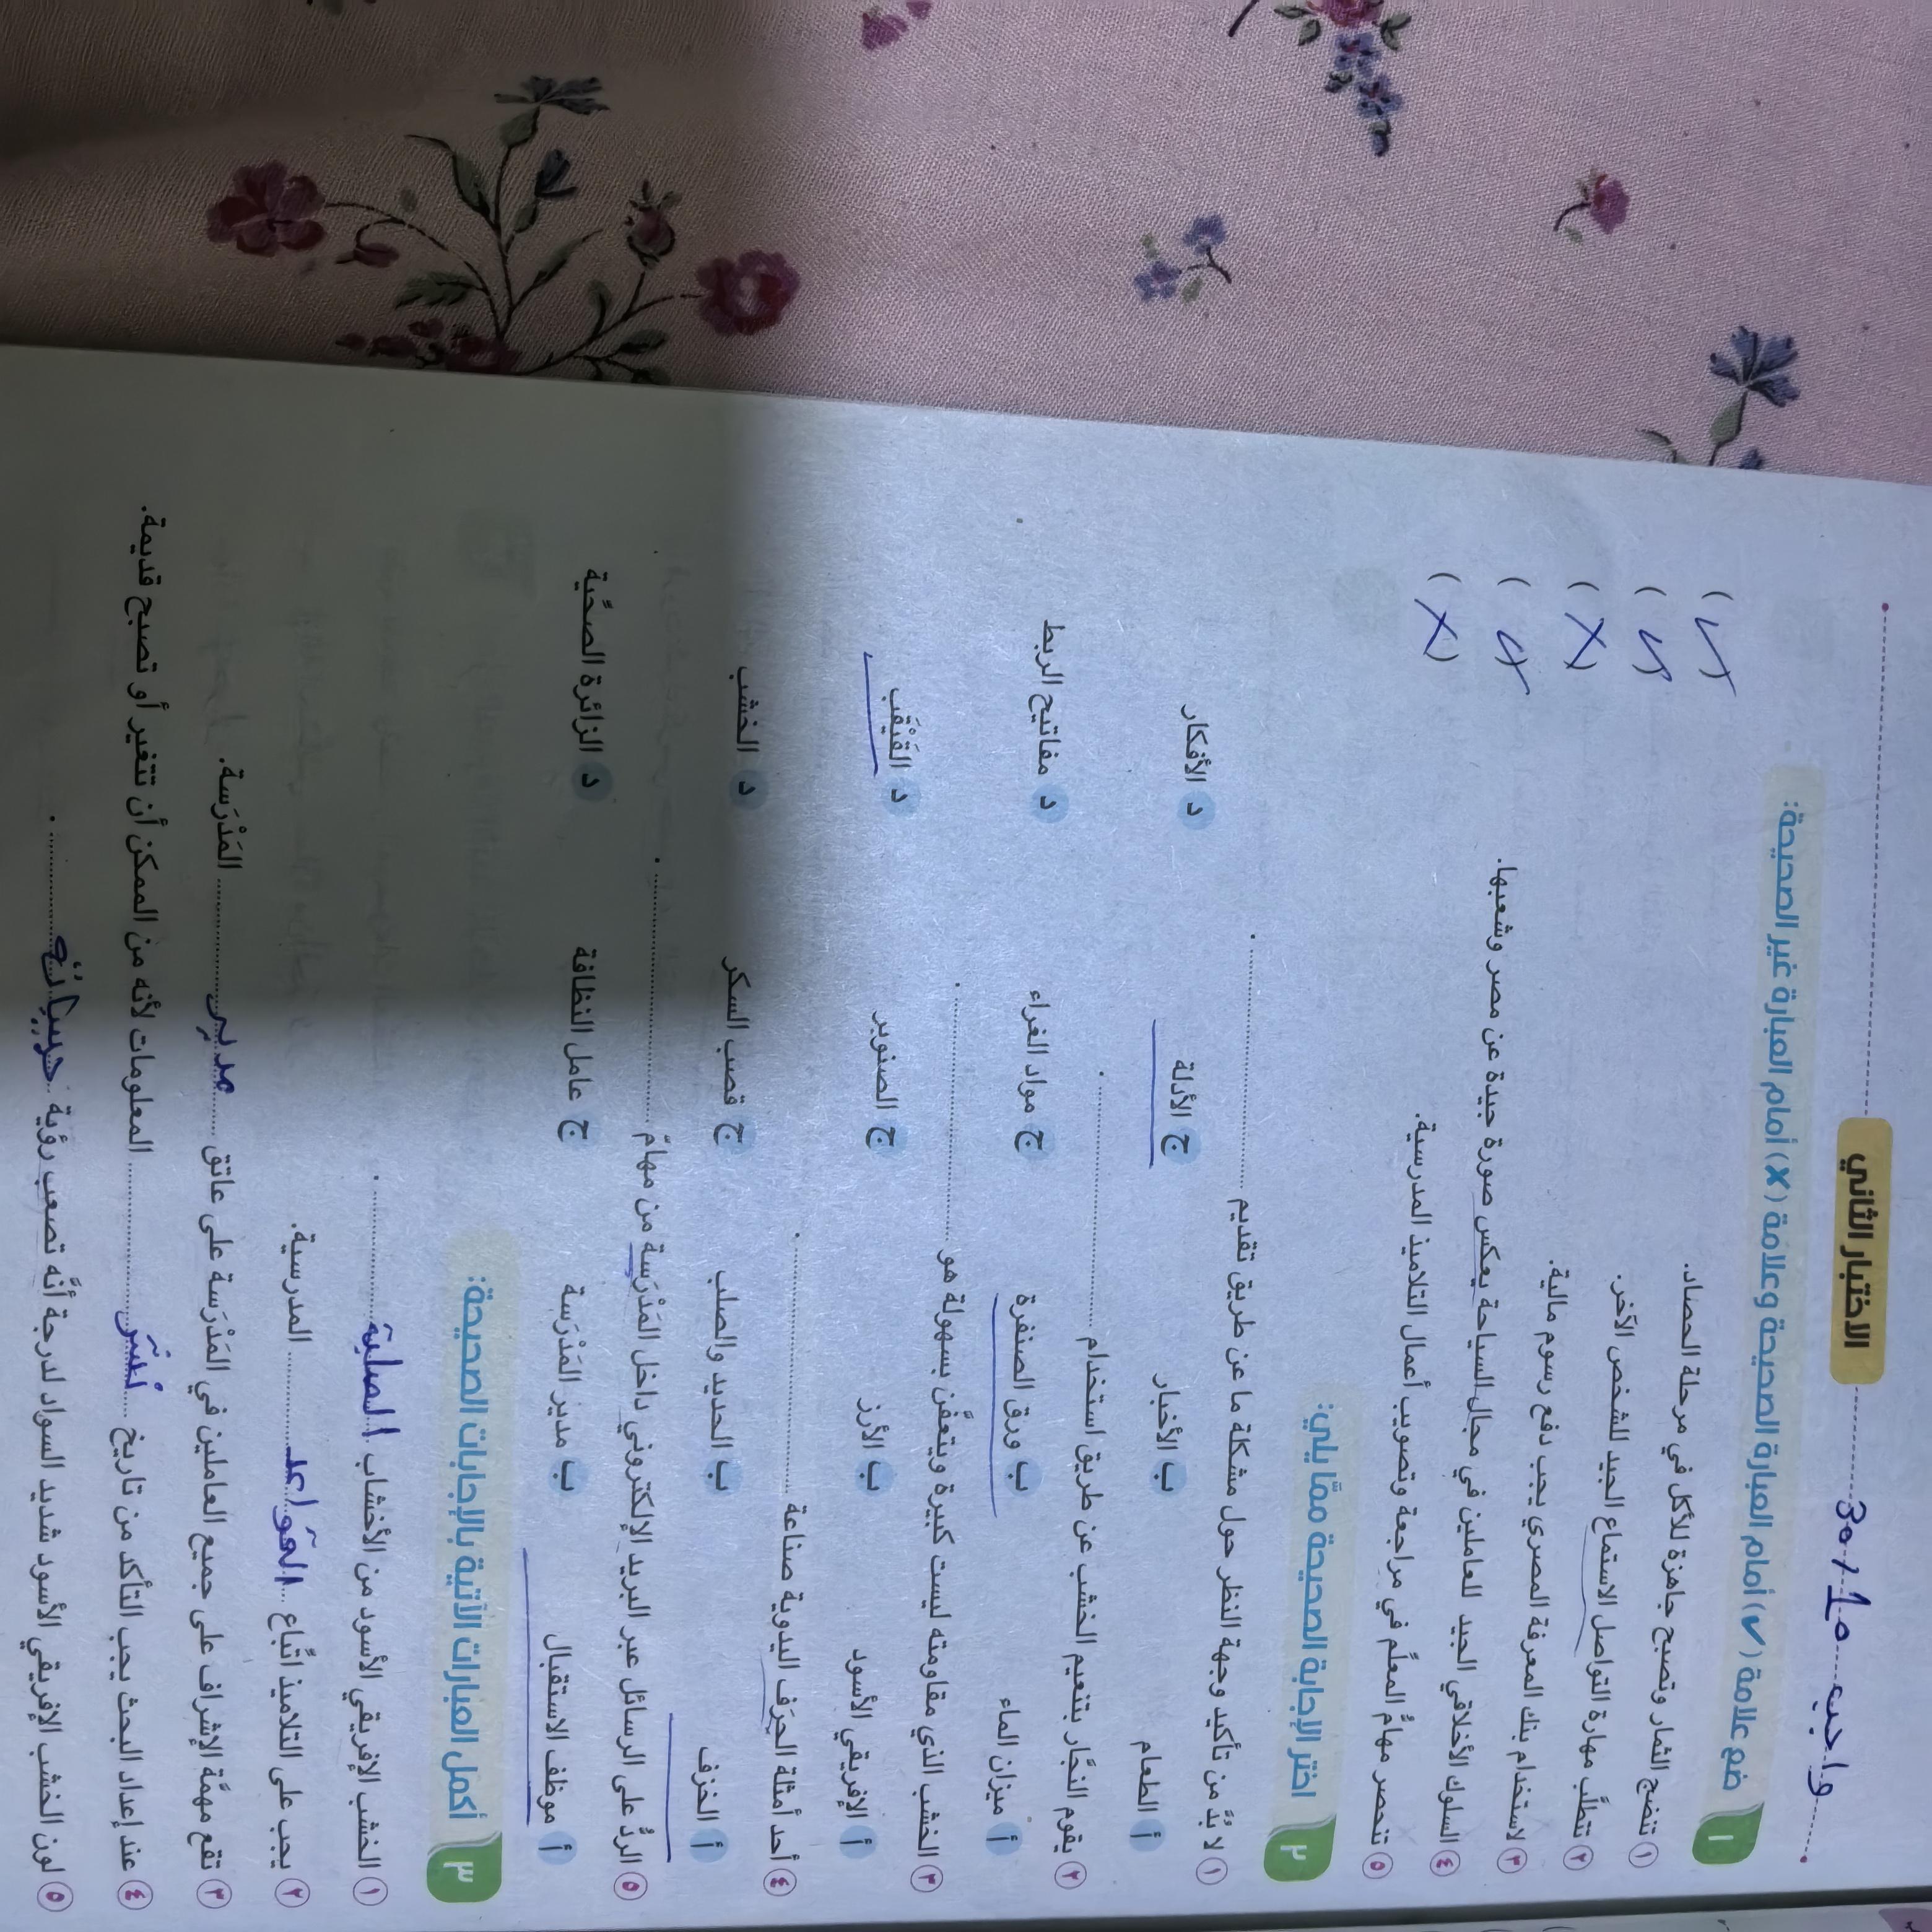 واجب 10 / 30
الاختبار الثاني
١ ضع علامة (✓) أمام العبارة الصحيحة وعلامة (✗) أمام العبارة غير الصحيحة:
١ تنضج الثمار وتصبح جاهزة للأكل في مرحلة الحصاد. (✓)
٢ تتطلَّب مهارة التواصل الاستماع الجيد للشخص الآخر. (✓)
٣ لاستخدام بنك المعرفة المصري يجب دفع رسوم مالية. (X)
٤ السلوك الأخلاقي الجيد للعاملين في مجال السياحة يعكس صورة جيدة عن مصر وشعبها. (✓)
٥ تنحصر مهامُّ المعلِّم في مراجعة وتصويب أعمال التلاميذ المدرسية. (X)
٢ اختر الإجابة الصحيحة ممَّا يلي:
١ لا بُدَّ من تأكيد وجهة النظر حول مشكلة ما عن طريق تقديم ............ .
أ الطعام ب الأخبار ج الأدلة د الأفكار
٢ يقوم النجَّار بتنعيم الخشب عن طريق استخدام ............ .
أ ميزان الماء ب ورق الصنفرة ج مواد الغراء د مفاتيح الربط
٣ الخشب الذي مقاومته ليست كبيرة ويتعفَّن بسهولة هو ............ .
أ الإفريقي الأسود ب الأرز ج الصنوبر د القَيْقَب
٤ أحد أمثلة الحِرَف اليدوية صناعة ............ .
أ الخزف ب الحديد والصلب ج قصب السكر د الخشب
٥ الردُّ على الرسائل عبر البريد الإلكتروني داخل المَدْرَسة من مهامِّ ............ .
أ موظف الاستقبال ب مدير المَدْرَسة ج عامل النظافة د الزائرة الصحِّية
٣ أكمل العبارات الآتية بالإجابات الصحيحة:
١ الخشب الإفريقي الأسود من الأخشاب الصلبة ............ .
٢ يجب على التلاميذ اتِّباع القواعد ............ المدرسية.
٣ تقع مهمَّة الإشراف على جميع العاملين في المَدْرَسة على عاتق مدير ............ المَدْرَسة.
٤ عند إعداد البحث يجب التأكد من تاريخ نشر ............ المعلومات لأنه من الممكن أن تتغير أو تصبح قديمة.
٥ لون الخشب الإفريقي الأسود شديد السواد لدرجة أنَّه تصعب رؤية ............ .